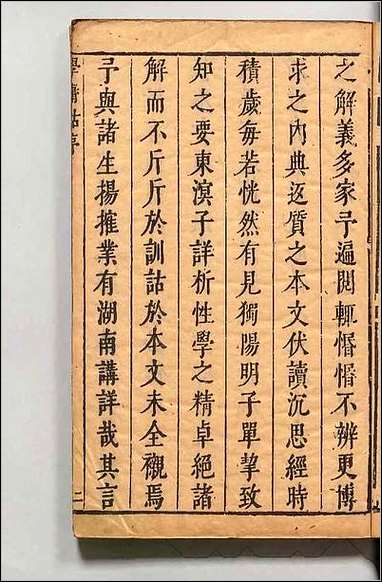 之解義多家予遍閱輒惛惛不辨更博
求之內典返質之本文伏讀沉思經時
積歲每若恍然有見獨陽明子單挈致
知之要東溟子詳析性學之精卓絕諸
解而不斤斤於訓詁於本文未全襯焉
予與諸生揚搉業有湖南講詳哉其言
學庸詁序
二